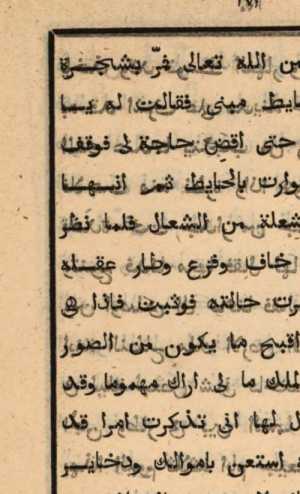 من الله تعالى مرّ بشجرة
حايط مبني فقالت له يا
حتى اقضي حاجة لي فوقف
توارت بالحايط ثم انها
شعلة من الشعال فلما نظر
خاف وفزع وطار عقله
حالته فوثبت فاذا
اقبح ما يكون من الصور
الملك ما لي اراك مهموما وقد
لها اني تذكرت امرا قد
استعن باموالك ودخاير